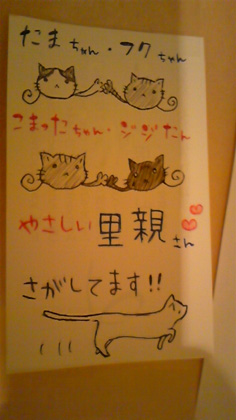 たまちゃん・フクちゃん
こまったちゃん・ジジたん
やさしい里親さん
さがしてます!!